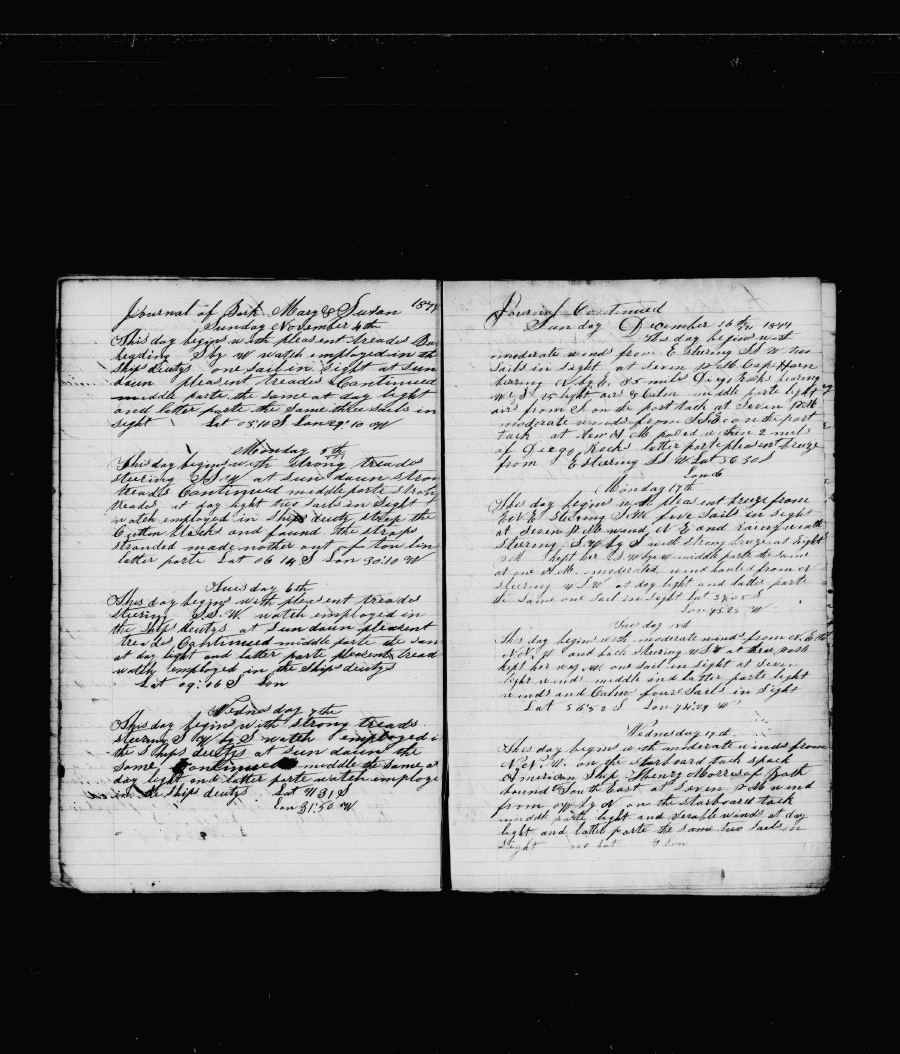 Journal of Bark Mary & Susan 1877
Sunday November 4th
This day begins with pleasent treades Bark
heading S by W watch employed in th
Ship deutys one sail in Sight at Sun
daun pleasent treades Continued
middle parte the same at day light
and latter parte the same three sails in
Sight Lat 03°10 S Lon 29°10 W
Monday 5th
This day begins with Strong treades
steering S S W at sun daun stron
treades Continued middle parte strong
treades at day light two sails in Sight
watch employed in Ships deuty strap the
Cutten block and faund the strap
stranded made nother out of tow line
latter parte Lat 06°14 S Lon 30°10 W
Tues day 6th
This day begins with pleasent treades
steering S.S.W. watch employed in
the Ship deutys at Sun daun pleasent
treades Continued middle parte the sam
at day light and latter parte pleasent tread
watch employed in the Ship deutys
Lat 09°06 S Lon
Wednes day 7th
This day begins with strong treads
steering S W by S watch employed i
the Ships deutys at sun daun the
same Continued middle the same at
day light and latter parte watch employe
in the Ships deutys Lat 11°31 S
Lon 31°50 W
Journal Continued
Sunday December 16th 1877
This day begins with
moderate winds from E Steering S S W two
sails in sight at seven P.M. Cap Horn
bering N by E. 35 mile Diego Rocks bearing
W.S. 25 light airs & Calm middle parte light
airs from S on the port tack at Seven P.M.
moderate winds from S S E on the port
tack at ten A M passed within 2 miles
of Diego Rocks latter parte pleasent breeze
from E Steering S S W Lat 56°30 S
Lon
Monday 17th
This day begins with pleasent breeze from
E steering S.W. five Sails in Sight
at Seven P.M. wind N E and rainy weath
Steering S W by S with strong breeze at Eight
P.M. kept her S W by W middle parte the same
at one A.M. moderated wind hauled from N
steering W S W at day light and latter parte
the same one Sail in Sight Lat
Lon 73°25 W
Tues day 18th
This day begins with moderate winds from N.E. to
N.N.W. and back steering W S W at three P.M.
kept her way W. one sail in sight at seven
light winds middle and latter parte light
winds and Calm four Sails in Sight
Lat 56°52 S Lon 74°29 W
Wednesday 19th
This day begins with moderate winds from
N.N.W. on the starboard tack spock
American Ship Henry Morris of Bath
bound South East at Seven P.M. wind
from W by N on the starboard tack
middle parte light and verable winds at day
light and latter parte the same two Sails in
Sight no Lat & Lon